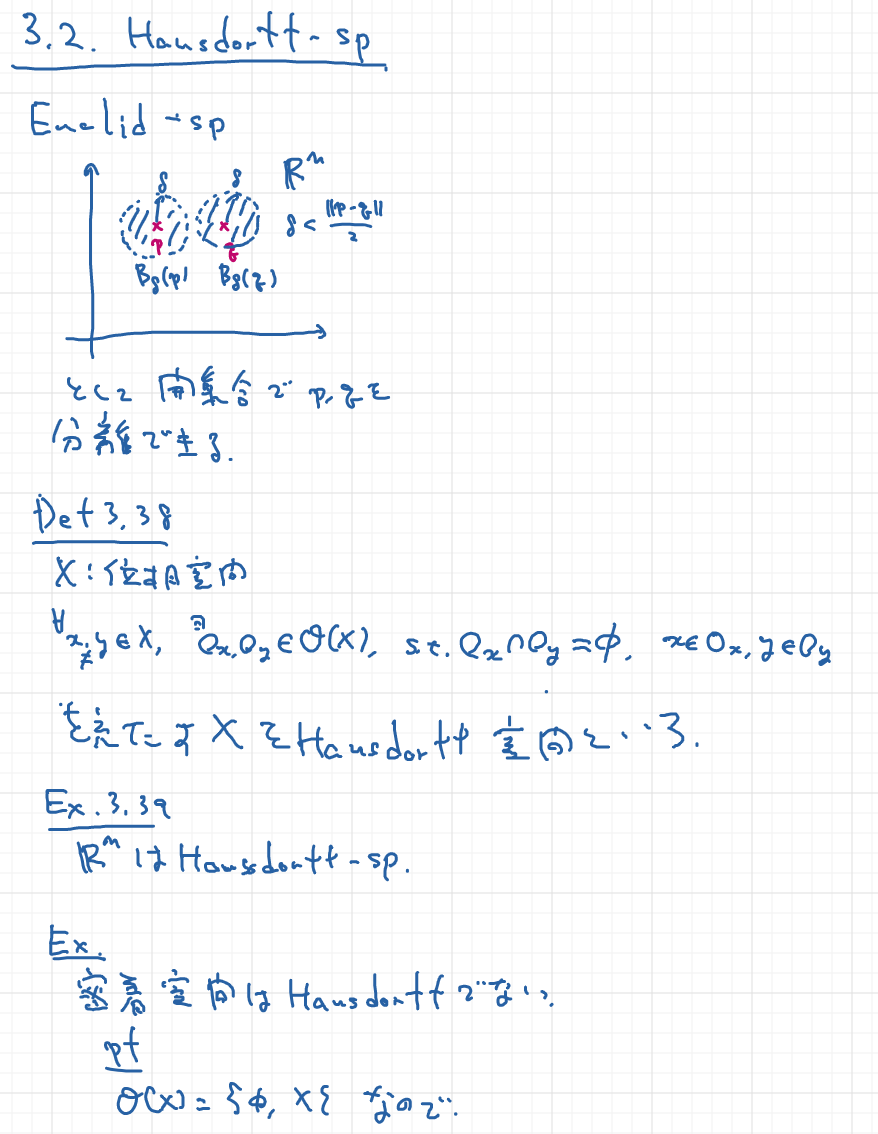 3.2. Hausdorff-sp
Euclid-sp
δ δ ℝⁿ
δ < ||p-q||/2
p q
B_δ(p) B_δ(q)
として 開集合で p, q を
分離できる.
Def 3.38
X : 位相空間
∀x≠y ∈ X, ∃O_x, O_y ∈ 𝒪(X), s.t. O_x ∩ O_y = φ, x ∈ O_x, y ∈ O_y
を満たす X を Hausdorff 空間という.
Ex. 3.39
ℝⁿ は Hausdorff-sp.
Ex.
密着空間は Hausdorff でない.
pf
𝒪(X) = {φ, X} なので.